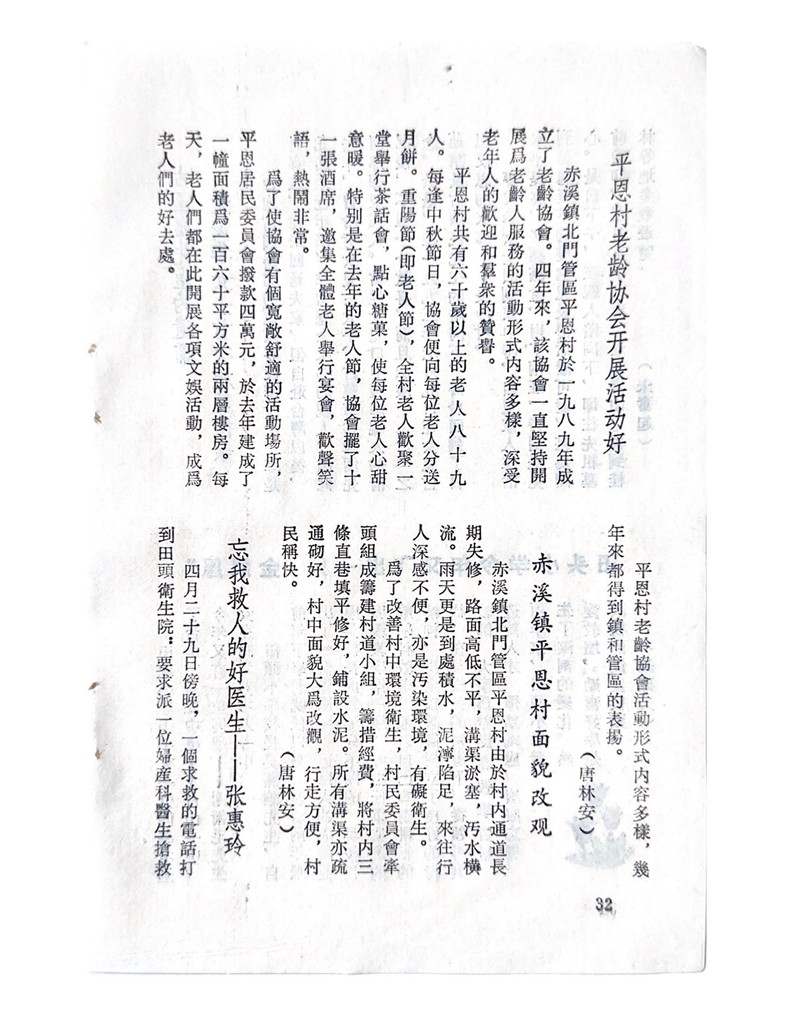 平恩村老龄协会开展活动好
赤溪鎮北門管區平恩村於一九八九年成
立了老齡協會。四年來，該協會一直堅持開
展爲老齡人服務的活動形式内容多樣，深受
老年人的歡迎和羣衆的贊譽。
平恩村共有六十歲以上的老人八十九
人。每逢中秋節日，協會便向每位老人分送
月餅。重陽節(即老人節)，全村老人歡聚一
堂舉行茶話會，點心糖菓，使每位老人心甜
意暖。特别是在去年的老人節，協會擺了十
一張酒席，邀集全體老人舉行宴會，歡聲笑
語，熱鬧非常。
爲了使協會有個寬敞舒適的活動場所，
平恩居民委員會撥款四萬元，於去年建成了
一幢面積爲一百六十平方米的兩層樓房。每
天，老人們都在此開展各項文娱活動，成爲
老人們的好去處。
平恩村老齡協會活動形式内容多樣，幾
年來都得到鎮和管區的表揚。
(唐林安)
赤溪镇平恩村面貌改观
赤溪鎮北門管區平恩村由於村内通道長
期失修，路面高低不平，溝渠淤塞，汚水横
流。雨天更是到處積水，泥濘陷足，來往行
人深感不便，亦是汚染環境，有礙衛生。
爲了改善村中環境衛生，村民委員會牽
頭組成籌建村道小組，籌措經費，將村内三
條直巷填平修好，鋪設水泥。所有溝渠亦疏
通砌好，村中面貌大爲改觀，行走方便，村
民稱快。
(唐林安)
忘我救人的好医生——张惠玲
四月二十九日傍晚，一個求救的電話打
到田頭衛生院：要求派一位婦產科醫生搶救
32